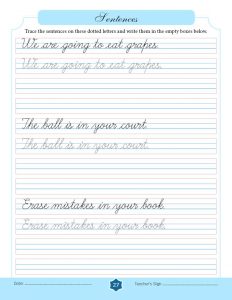 Sentences
Trace the sentences on these dotted letters and write them in the empty boxes below.
We are going to eat grapes.
We are going to eat grapes.
The ball is in your court.
The ball is in your court.
Erase mistakes in your book.
Erase mistakes in your book.
Date: 27 Teacher's Sign